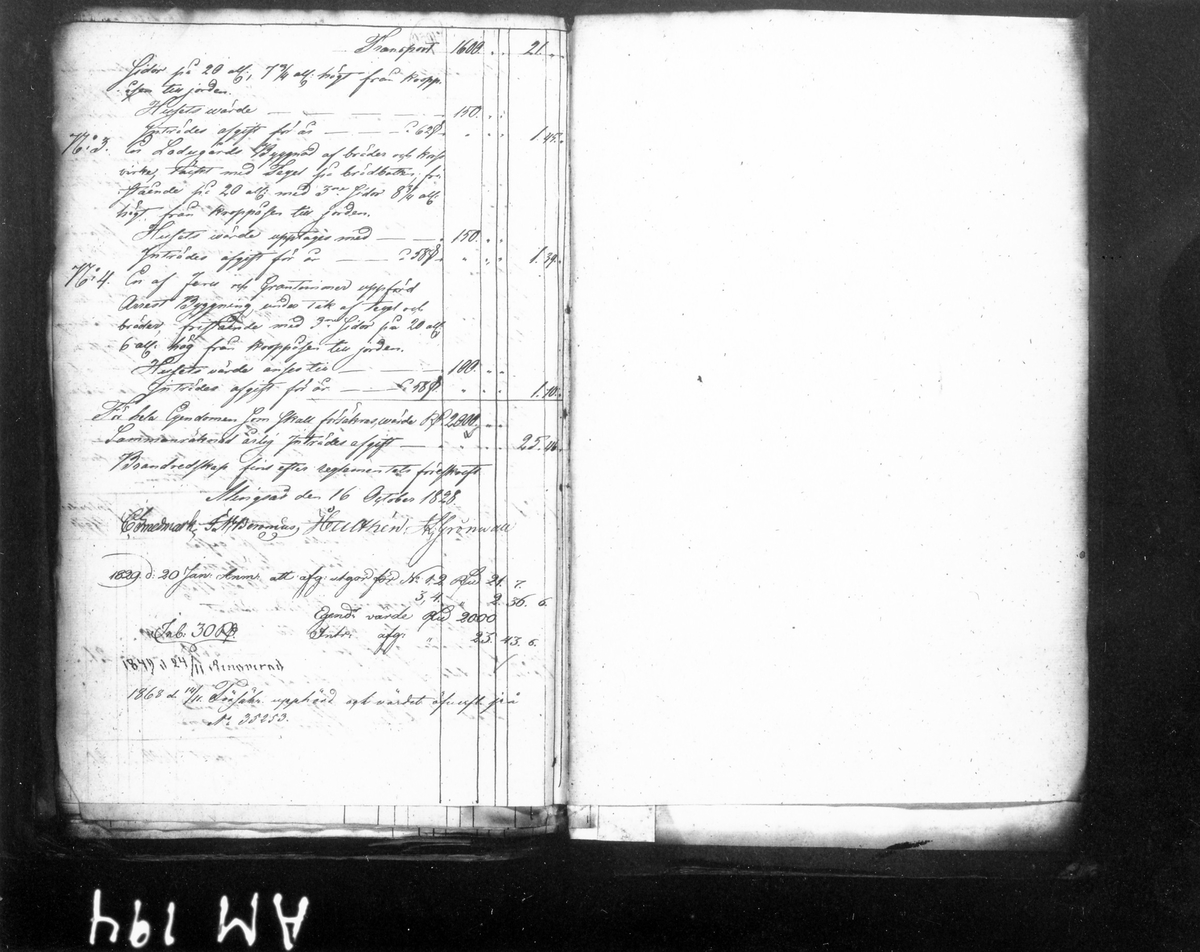 Transport 1600. „ 21. „
Sidor på 20 aln, 7 3/4 aln högt från kropp-
åsen till jorden.
Husets wärde — — — 150. „
Inträdes afgift för år — — 1. 45.
N:o 3. En Ladugårds Byggnad af bräder och kors-
wirke, täckt med Tegel på brädbotten, fri-
stående på 20 aln med 3ne Sidor 8 3/4 aln
högt från kroppåsen till jorden.
Husets wärde upptages med — 150. „
Inträdes afgift för år — — 1. 39.
N:o 4. En af Jern och Granstimmer uppförd
Arrest Byggning under tak af tegel och
bräder, fristående med 3ne Sidor på 20 aln
6 aln hög från kroppåsen till jorden.
Husets wärde anses till — — 100. „
Inträdes afgift för år — —
För hela Egendomen som skall försäkras, wärde 2000. „
Sammanräknad årlig Inträdes afgift — 25. 46.
Brandredskap fins efter reglementets föreskrift
Alingsås den 16 October 1828.
1829 d: 20 Jan: Anm: att afg: utgör för N: 1. 2 Rd 21. 7.
3, 4. „ 2. 36. 6.
Egend: värde Rd 2000
Inb. 30 Rd. Intr: afg: „ 23. 43. 6.
1849 d 24/11 Renoverad
1868 d. 14/11. Försäkr. upphörd och värdet öfverfl. på
No 35253.
AM 194